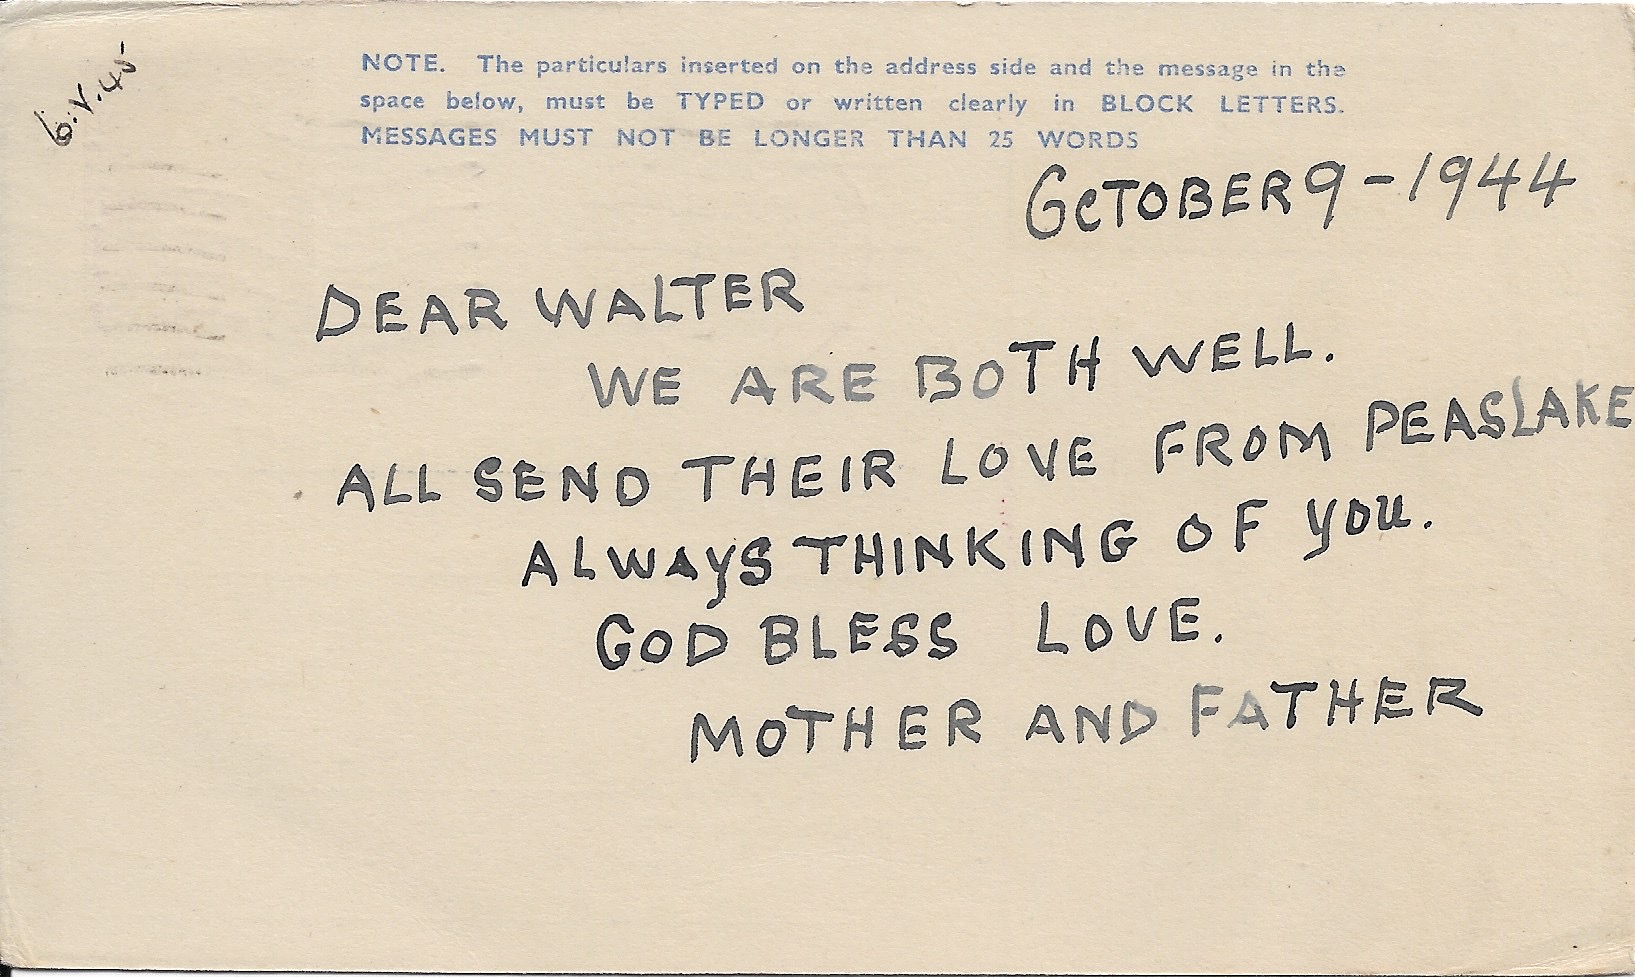 6.V.45
NOTE. The particulars inserted on the address side and the message in the
space below, must be TYPED or written clearly in BLOCK LETTERS.
MESSAGES MUST NOT BE LONGER THAN 25 WORDS
OCTOBER 9-1944
DEAR WALTER
WE ARE BOTH WELL.
ALL SEND THEIR LOVE FROM PEASLAKE
ALWAYS THINKING OF YOU.
GOD BLESS LOVE.
MOTHER AND FATHER